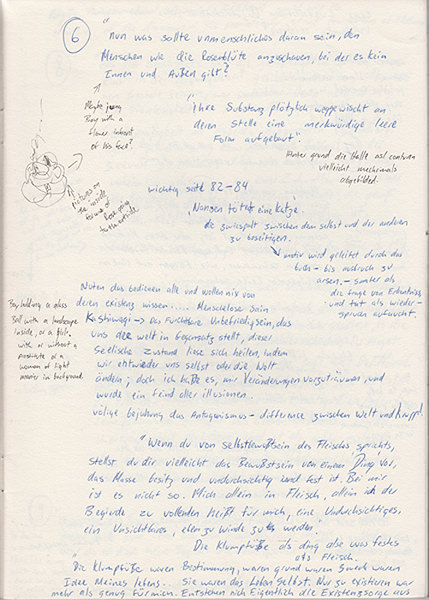 6
"Nun was sollte unmenschliches daran sein, den
Menschen wie die Rosenblüte anzuschauen, bei der es kein
Innen und Außen gibt?
Maybe young
Boy with a
flower infront
of his face?
"Ihre Substanz plötzlich weggewischt an
deren Stelle eine merkwürdige leere
Form aufgebaut".
Hinter grund die Halle als conturen
vielleicht mechrimals
abgebildet.
pictures on
the inside
forms of
Rose going
to the outside
wichtig seite 82-84
"Nansen tötet eine Katze"
die zwiespalt zwischen dem selbst und der anderen
zu beseitigen.
motiv wird geleitet durch das
buch - bis ausbruch zu
arsen, - samter als
die frage von Erkentniss
und tat als wieder-
spruch auftaucht.
Boy holding a glass
Ball with a landscape
inside, or a Bible,
with or without a
prostitute or a
women of light
manier in background.
deren existenz wissen..... Menschelose Dasein
Kashiwagi → Das furchtbare Unbefriedigsein, das
uns der welt in gegensatz stellt, dieser
Seelische Zustand liese sich heilen, indem
wir entweder uns selbst oder die Welt
ändern; doch ich haße es, mir Veränderungen vorzuträumen, und
wurde ein feind aller illusionen.
völige bejahung des Antagonismus - difference zwischen Welt und
"Wenn du von selbstbewußtsein des Fleisches sprichts,
stellst du dir vielleicht das Bewußtsein von einem Ding vor,
das Masse besitz und undurchsichtig und fest ist. Bei mir
ist es nicht so. Mich allein in Fleisch, allein in der
Begierde zu vollenden heißt für mich, eine Undurchsichtiges,
ein Unsichtbares, eben zu Winde zu werden"
Die Klumpfüße als ding also was festes
als Fleisch.
"Die Klumpfüße waren Bestimmung, waren grund waren Zweck waren
Idee Meines lebens... sie waren das Leben Selbst. Nur zu existieren war
mehr als genug für mich. Entstehen nich Eigentlich die Existenzsorge aus